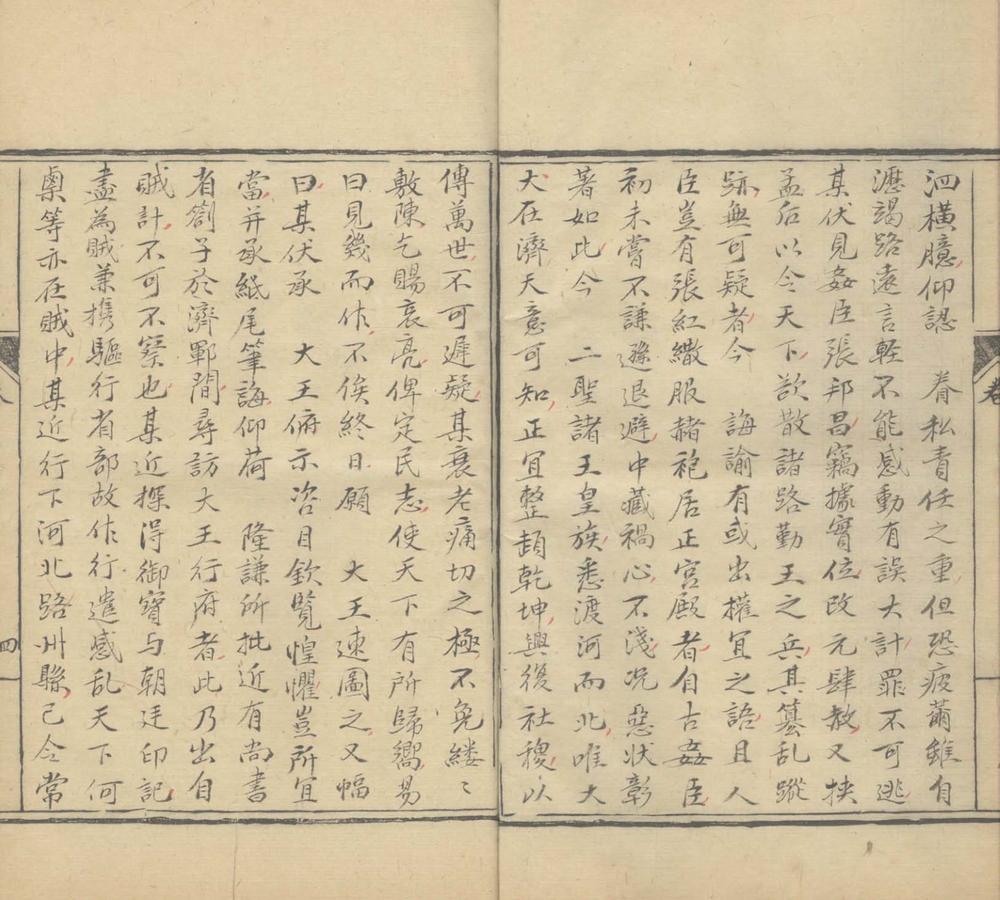 泗橫臆仰認　眷私責任之重但恐疲薾雖自
瀝竭路遠言輕不能感動有誤大計罪不可逃
某伏見姦臣張邦昌竊據寶位改元肆赦又挾
孟后以令天下欲散諸路勤王之兵其篡乱蹤
跡無可疑者今　誨諭有或出權宜之語且人
臣豈有張紅繖服赭袍居正宮殿者自古姦臣
初未嘗不謙遜退避中藏禍心不淺况惡狀彰
著如此今　二聖諸王皇族悉渡河而北唯大
大在濟天意可知正宜整頓乾坤興復社稷以
傳萬世不可遲疑某衰老痛切之極不免縷〻
敷陳乞賜哀亮俾定民志使天下有所歸嚮易
曰見幾而作不俟終日願　大王速圖之又幅
曰某伏承　大王俯示咨目欽覽惶懼豈所宜
當并承紙尾筆誨仰荷　隆謙所批近有尚書
省劄子於濟鄆間尋訪大王行府者此乃出自
賊計不可不察也某近探得御寶与朝廷印記
盡為賊兼携驅行省部故作行遣惑乱天下何
㮚等亦在賊中某近行下河北路州縣已令常
卷
四